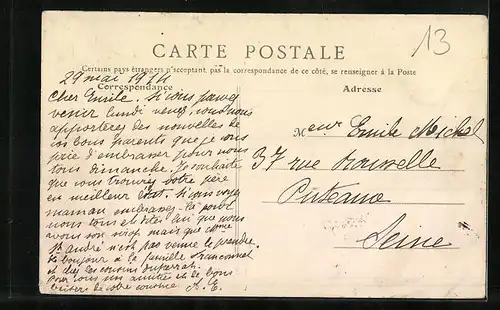 13
CARTE POSTALE
Certains pays étrangers n'acceptant pas la correspondance de ce côté, se renseigner à la Poste
29 mai 1914
Correspondance
Adresse
Cher Emile. Si vous pouvez
venir lundi venez, vous nous
apporterez des nouvelles de
vos bons parents que je vous
prie d'embrasser pour nous
tous dimanche. Je souhaite
que vous trouviez votre père
en meilleur état. Si vous voyez
maman embrassez-la pour
nous tous et dites lui que nous
avons son mais que comme
André n'est pas venu le prendre.
bonjour à la famille
et chez les cousins
Pour vous nos amitiés et de bons
baisers de votre cousine A. E.
Mr Emile Michel
37 rue Rousselle
Puteaux
Seine